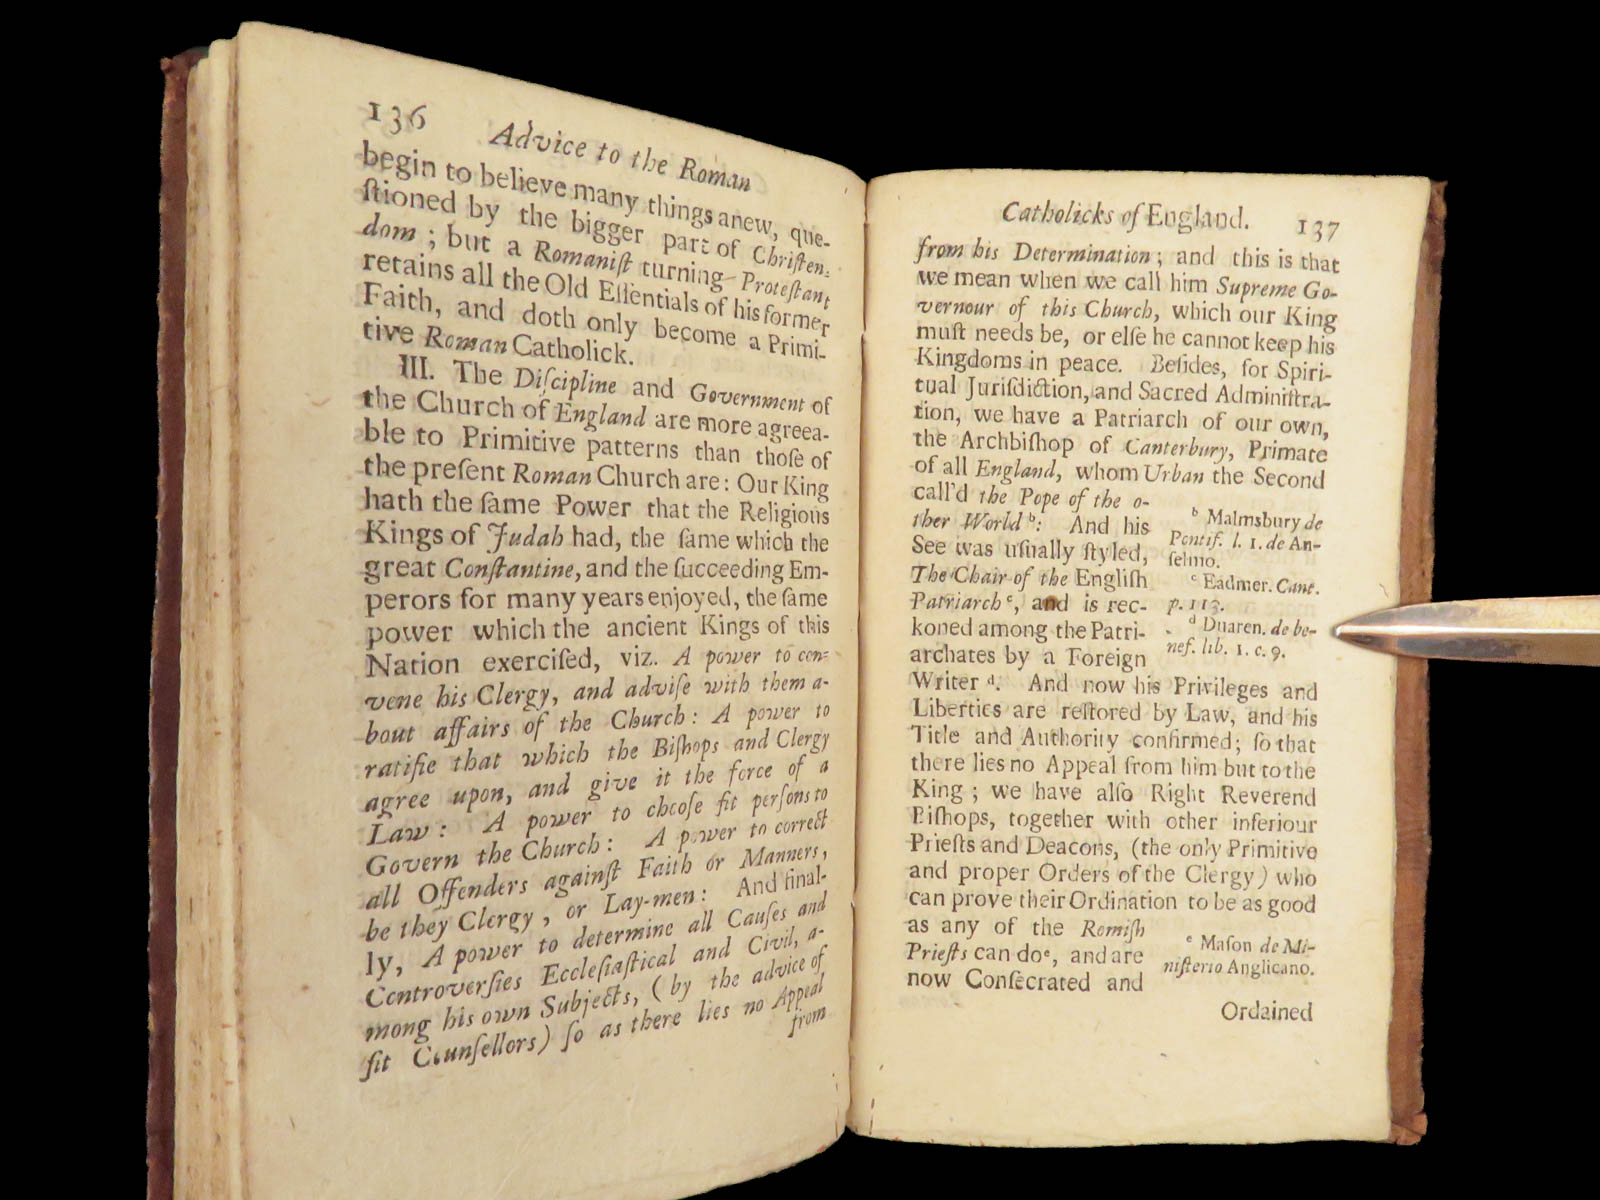 136
Advice to the Roman
begin to believe many things anew, que-
ſtioned by the bigger part of Chriſten-
dom; but a Romaniſt turning Proteſtant
retains all the Old Eſſentials of his former
Faith, and doth only become a Primi-
tive Roman Catholick.
III. The Diſcipline and Government of
the Church of England are more agreea-
ble to Primitive patterns than thoſe of
the preſent Roman Church are: Our King
hath the ſame Power that the Religious
Kings of Judah had, the ſame which the
great Conſtantine, and the ſucceeding Em-
perors for many years enjoyed, the ſame
power which the ancient Kings of this
Nation exerciſed, viz. A power to con-
vene his Clergy, and adviſe with them a-
bout affairs of the Church: A power to
ratifie that which the Biſhops and Clergy
agree upon, and give it the force of a
Law: A power to chooſe fit perſons to
Govern the Church: A power to correct
all Offenders againſt Faith or Manners,
be they Clergy, or Lay-men: And final-
ly, A power to determine all Cauſes and
Controverſies Eccleſiaſtical and Civil, a-
mong his own Subjects, (by the advice of
fit Counſellors) ſo as there lies no Appeal
from
Catholicks of England. 137
from his Determination; and this is that
we mean when we call him Supreme Go-
vernour of this Church, which our King
muſt needs be, or elſe he cannot keep his
Kingdoms in peace. Beſides, for Spiri-
tual Juriſdiction, and Sacred Adminiſtra-
tion, we have a Patriarch of our own,
the Archbiſhop of Canterbury, Primate
of all England, whom Urban the Second
call'd the Pope of the o-
ther World b: And his
See was uſually ſtyled,
The Chair of the Engliſh
Patriarch c, and is rec-
koned among the Patri-
archates by a Foreign
Writer d. And now his Privileges and
Liberties are reſtored by Law, and his
Title and Authority confirmed; ſo that
there lies no Appeal from him but to the
King; we have alſo Right Reverend
Biſhops, together with other inferiour
Prieſts and Deacons, (the only Primitive
and proper Orders of the Clergy) who
can prove their Ordination to be as good
as any of the Romiſh
Prieſts can do e, and are
now Conſecrated and
Ordained
b Malmsbury de
Pontif. l. 1. de An-
ſelmo.
c Eadmer. Cant.
p. 113.
d Duaren. de be-
nef. lib. 1. c. 9.
e Maſon de Mi-
niſterio Anglicano.